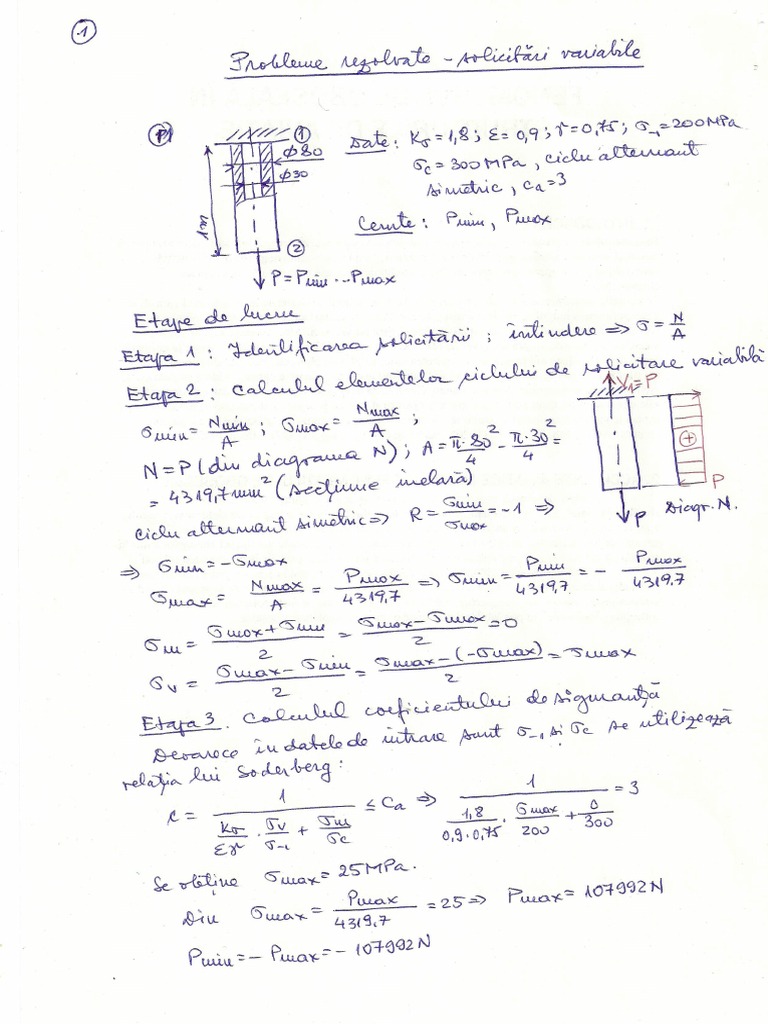 1
Probleme rezolvate – solicitări variabile
P1
1
Φ80
Φ30
1m
2
P = Pmin ... Pmax
Date: Kσ = 1,8 ; ε = 0,9 ; γ = 0,75 ; σ-1 = 200 MPa
σc = 300 MPa, ciclu alternant
simetric, ca = 3
Cerute: Pmin, Pmax
Etape de lucru
Etapa 1: Identificarea solicitării ; întindere ⇒ σ = N/A
Etapa 2: Calculul elementelor ciclului de solicitare variabilă
σmin = Nmin/A ; σmax = Nmax/A ;
N = P (din diagrama N) ; A = π·80²/4 − π·30²/4 =
= 4319,7 mm² (secțiune inelară)
= P
P
P
Diagr. N.
ciclu alternant simetric ⇒ R = σmin/σmax = −1 ⇒
⇒ σmin = −σmax
σmax = Nmax/A = Pmax/4319,7 ⇒ σmin = Pmin/4319,7 = − Pmax/4319,7
σm = (σmax + σmin)/2 = (σmax − σmax)/2 = 0
σv = (σmax − σmin)/2 = (σmax − (−σmax))/2 = σmax
Etapa 3. Calculul coeficientului de siguranță
Deoarece în datele de intrare sunt σ-1 și σc se utilizează
relația lui Soderberg:
c = 1/(Kσ/εγ · σv/σ-1 + σm/σc) ≤ ca ⇒ 1/(1,8/0,9·0,75 · σmax/200 + 0/300) = 3
Se obține σmax = 25 MPa.
Din σmax = Pmax/4319,7 = 25 ⇒ Pmax = 107992 N
Pmin = − Pmax = − 107992 N